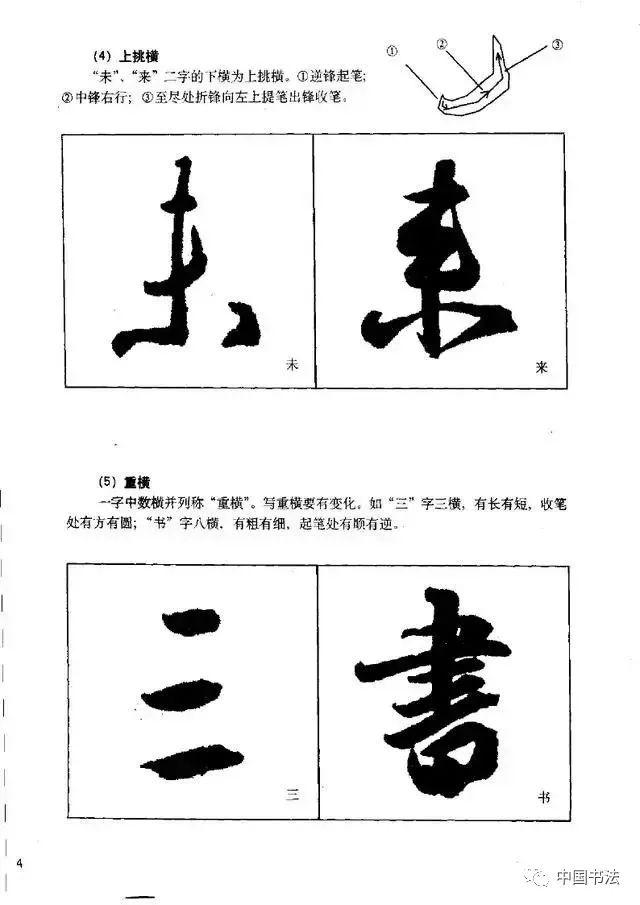 (4) 上挑横
“未”、“来”二字的下横为上挑横。①逆锋起笔;
②中锋右行; ③至尽处折锋向左上提笔出锋收笔。
① ② ③
未 来
未 来
(5) 重横
一字中数横并列称“重横”。写重横要有变化。如“三”字三横，有长有短，收笔
处有方有圆; “书”字八横，有粗有细，起笔处有顺有逆。
三 書
三 书
4
中国书法